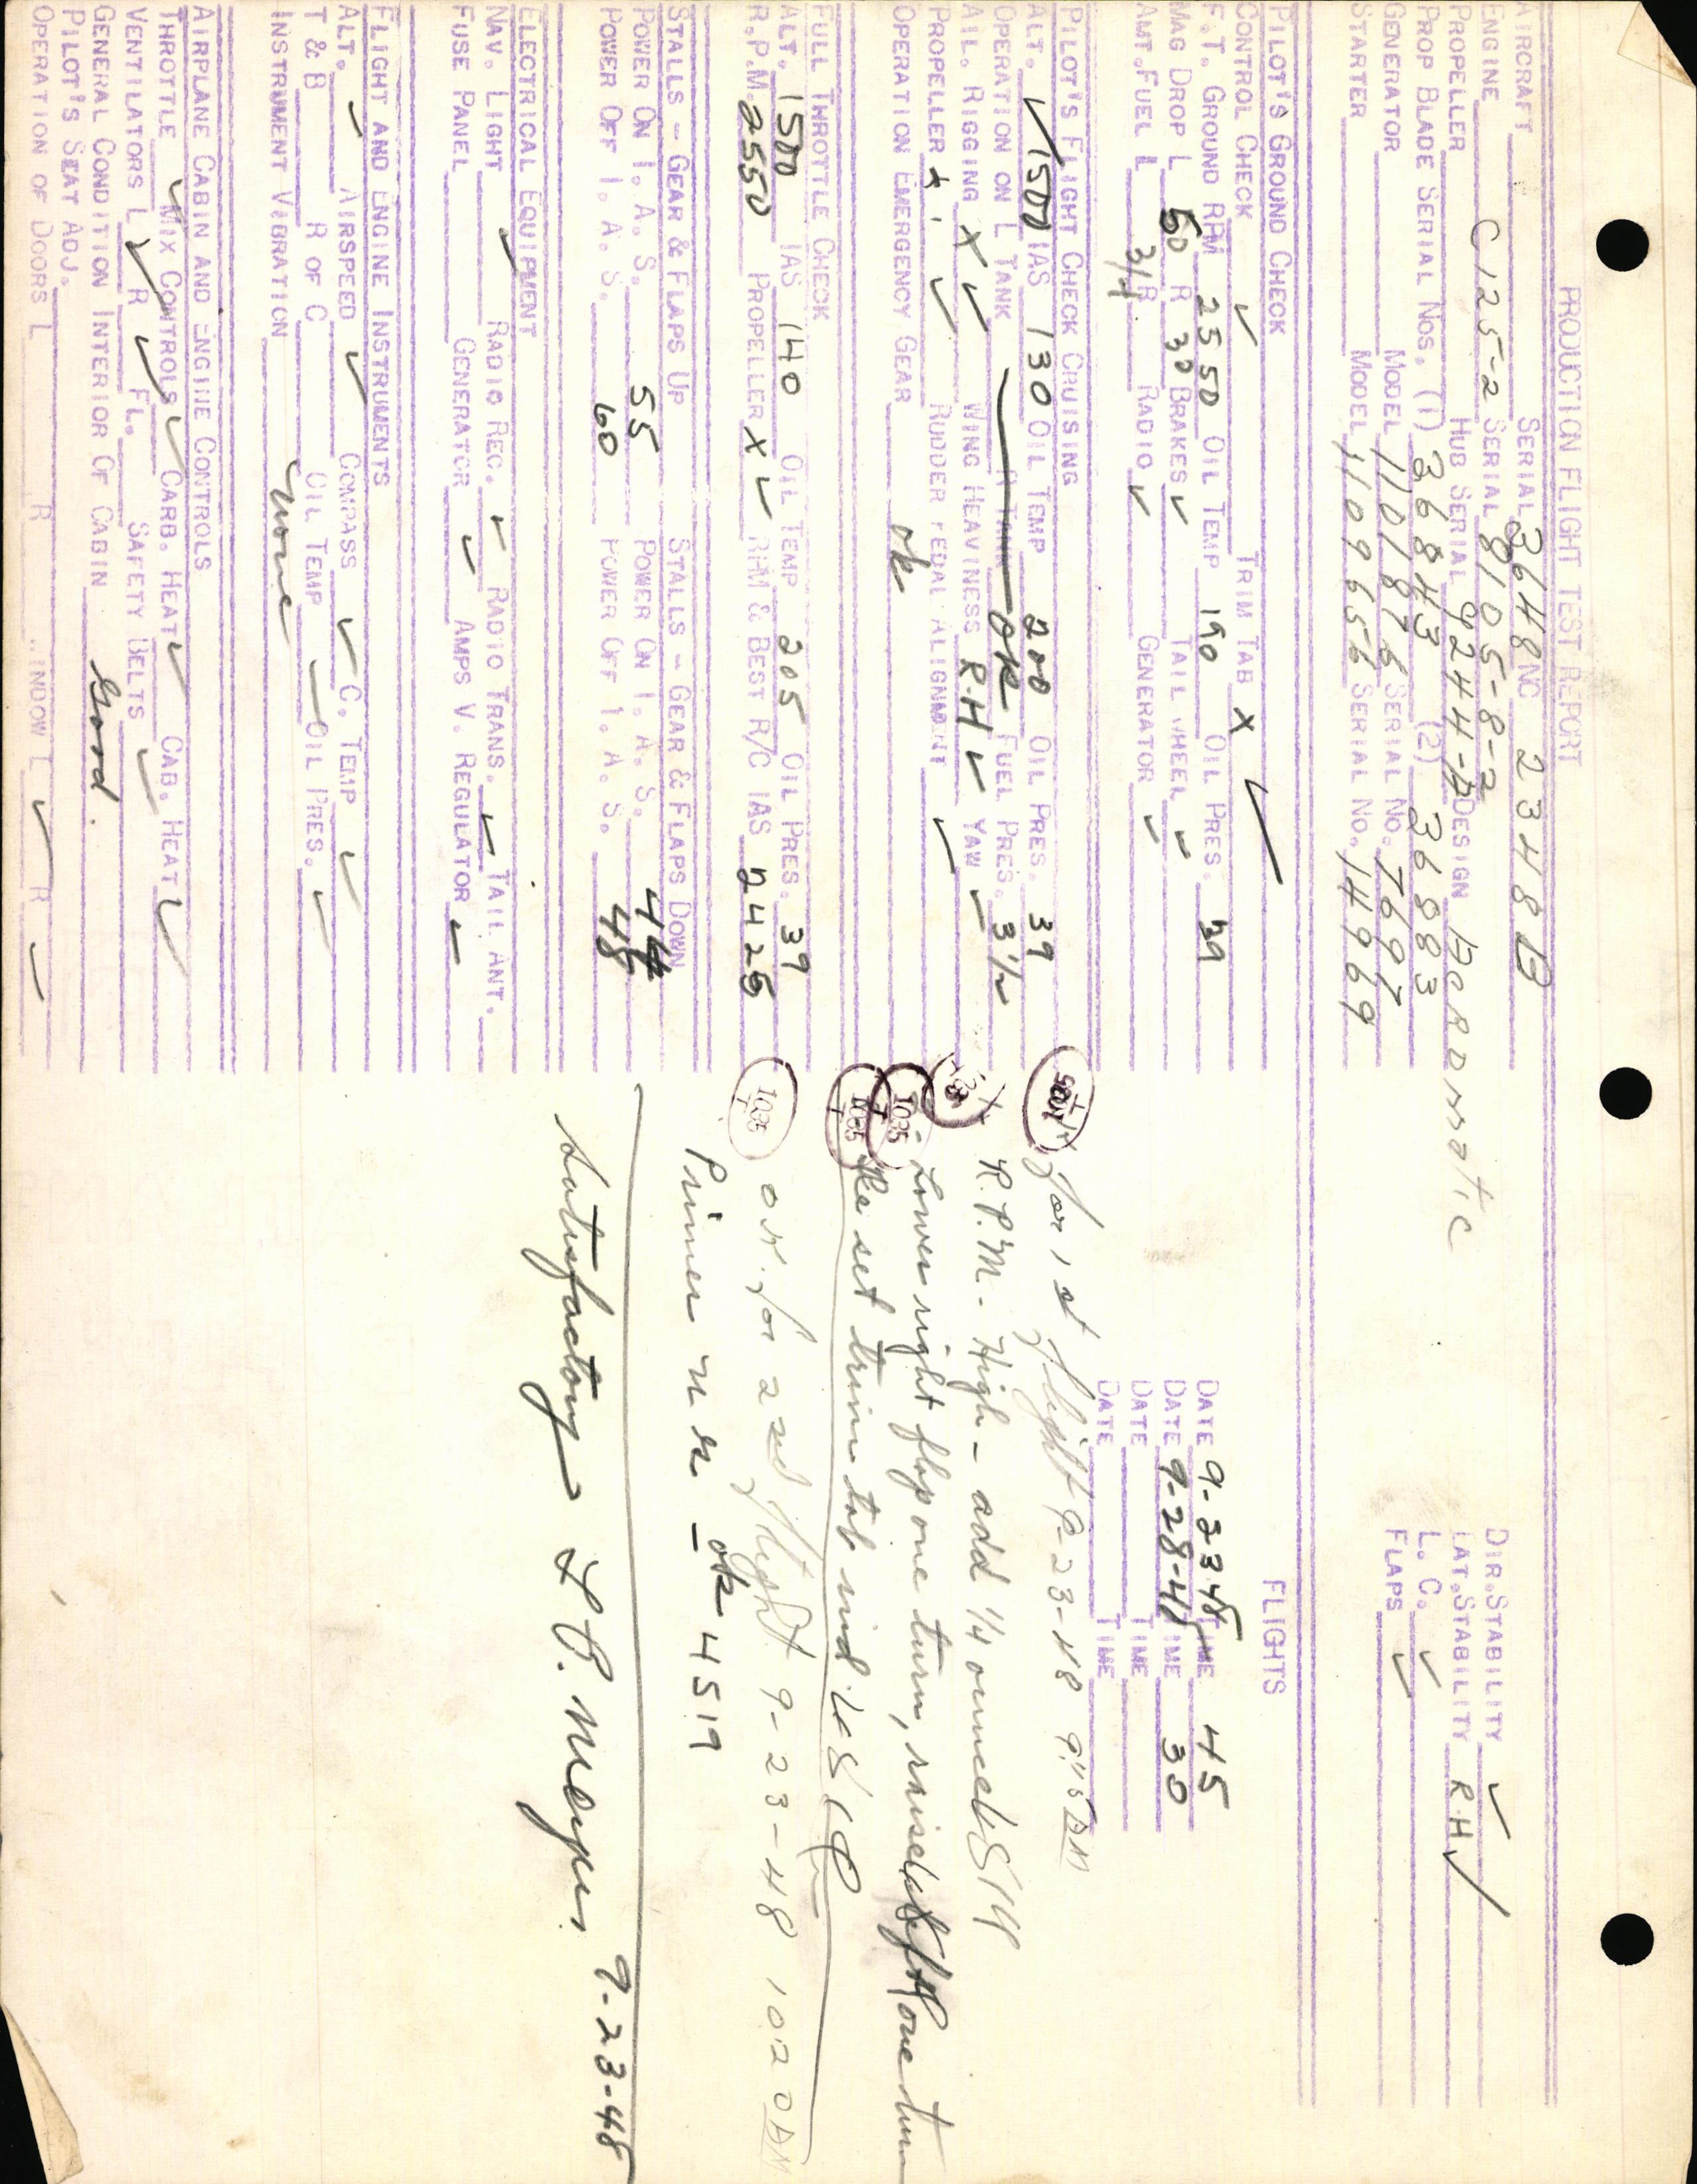 PRODUCTION FLIGHT TEST REPORT
AIRCRAFT SERIAL 3648 NC 2348B
ENGINE C125-2 SERIAL 8105-8-2 DIR. STABILITY ✓
PROPELLER HUB SERIAL 9244-A DESIGN LAT. STABILITY RH ✓
PROP BLADE SERIAL NOS. (1) 36843 (2) 36883 L. C. ✓
GENERATOR MODEL 1101876 SERIAL NO. 7697 FLAPS ✓
STARTER MODEL 1109656 SERIAL NO. 14969
PILOT'S GROUND CHECK FLIGHTS
CONTROL CHECK ✓ TRIM TAB X ✓
F.T. GROUND RPM 2550 OIL TEMP 190 OIL PRES. 39 DATE 9-23-48 TIME 45
MAG DROP L 50 R 30 BRAKES ✓ TAIL WHEEL ✓ DATE 9-28-48 TIME 30
AMT. FUEL L 3/4 R RADIO ✓ GENERATOR ✓ DATE TIME
DATE TIME
PILOT'S FLIGHT CHECK CRUISING
ALT. ✓ 1500 IAS 130 OIL TEMP 200 OIL PRES. 39 for 1st flight 9-23-48 9:15 AM
OPERATION ON L TANK R TANK OK FUEL PRES. 3 1/2
AIL. RIGGING X ✓ WING HEAVINESS R.H ✓ YAW ✓ R.P.M. - High - add 1/4 ounce 4519
PROPELLER ✓ RUDDER PEDAL ALIGNMENT ✓ Lower right flap one turn, raise left one turn
OPERATION EMERGENCY GEAR ok Re set trim tab ind. 4519
FULL THROTTLE CHECK
ALT. 1500 IAS 140 OIL TEMP 205 OIL PRES. 39
R.P.M. 2550 PROPELLER X ✓ RPM & BEST R/C IAS 2425 1035 OK for 2nd flight 9-23-48 10:20 AM
STALLS - GEAR & FLAPS UP STALLS - GEAR & FLAPS DOWN Primer n r - ok 4519
POWER ON I. A. S. 55 POWER ON I. A. S. 44
POWER OFF I. A. S. 60 POWER OFF I. A. S. 48
9-23-48
ELECTRICAL EQUIPMENT Satisfactory
NAV. LIGHT ✓ RADIO REC. ✓ RADIO TRANS. ✓ TAIL ANT.
FUSE PANEL GENERATOR ✓ AMPS V. REGULATOR ✓
FLIGHT AND ENGINE INSTRUMENTS
ALT. ✓ AIRSPEED ✓ COMPASS ✓ C. TEMP ✓
T & B R OF C OIL TEMP ✓ OIL PRES. ✓
INSTRUMENT VIBRATION None
AIRPLANE CABIN AND ENGINE CONTROLS
THROTTLE ✓ MIX CONTROLS ✓ CARB. HEAT ✓ CAB. HEAT ✓
VENTILATORS L ✓ R ✓ FL. SAFETY BELTS ✓
GENERAL CONDITION INTERIOR OF CABIN Good.
PILOT'S SEAT ADJ.
OPERATION OF DOORS L R WINDOW L ✓ R ✓